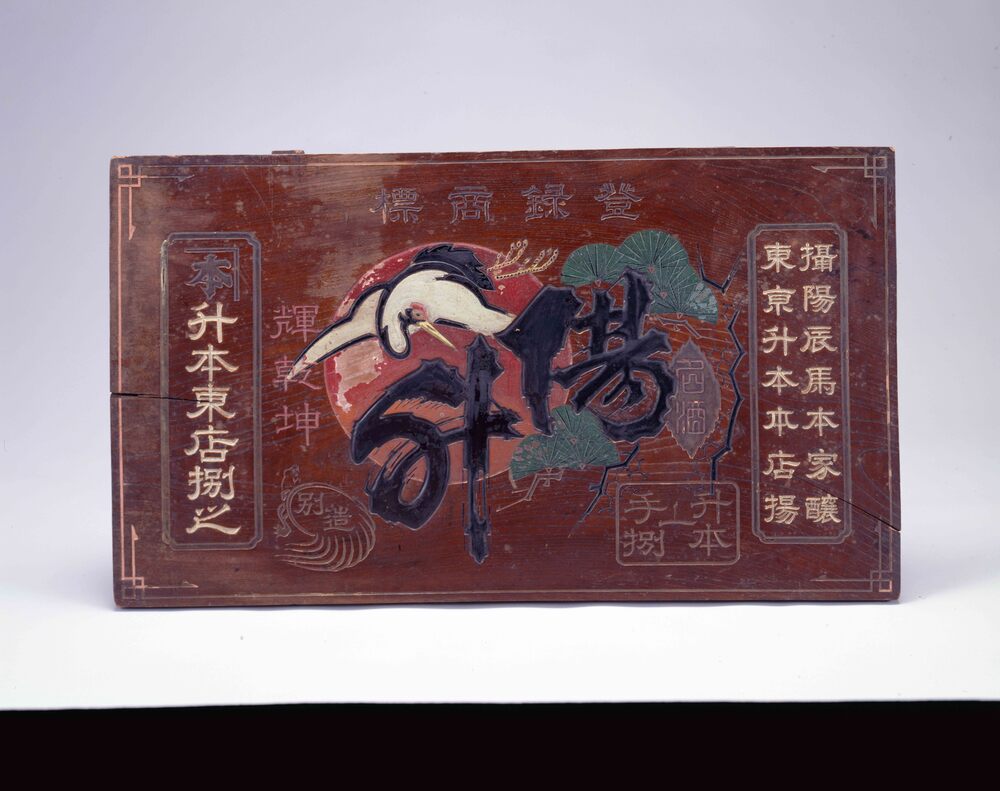 登録商標
攝陽辰馬本家醸
東京升本本店揚
陽升
酒
升本
手捌
輝乾坤
別造
本
升本東店捌之